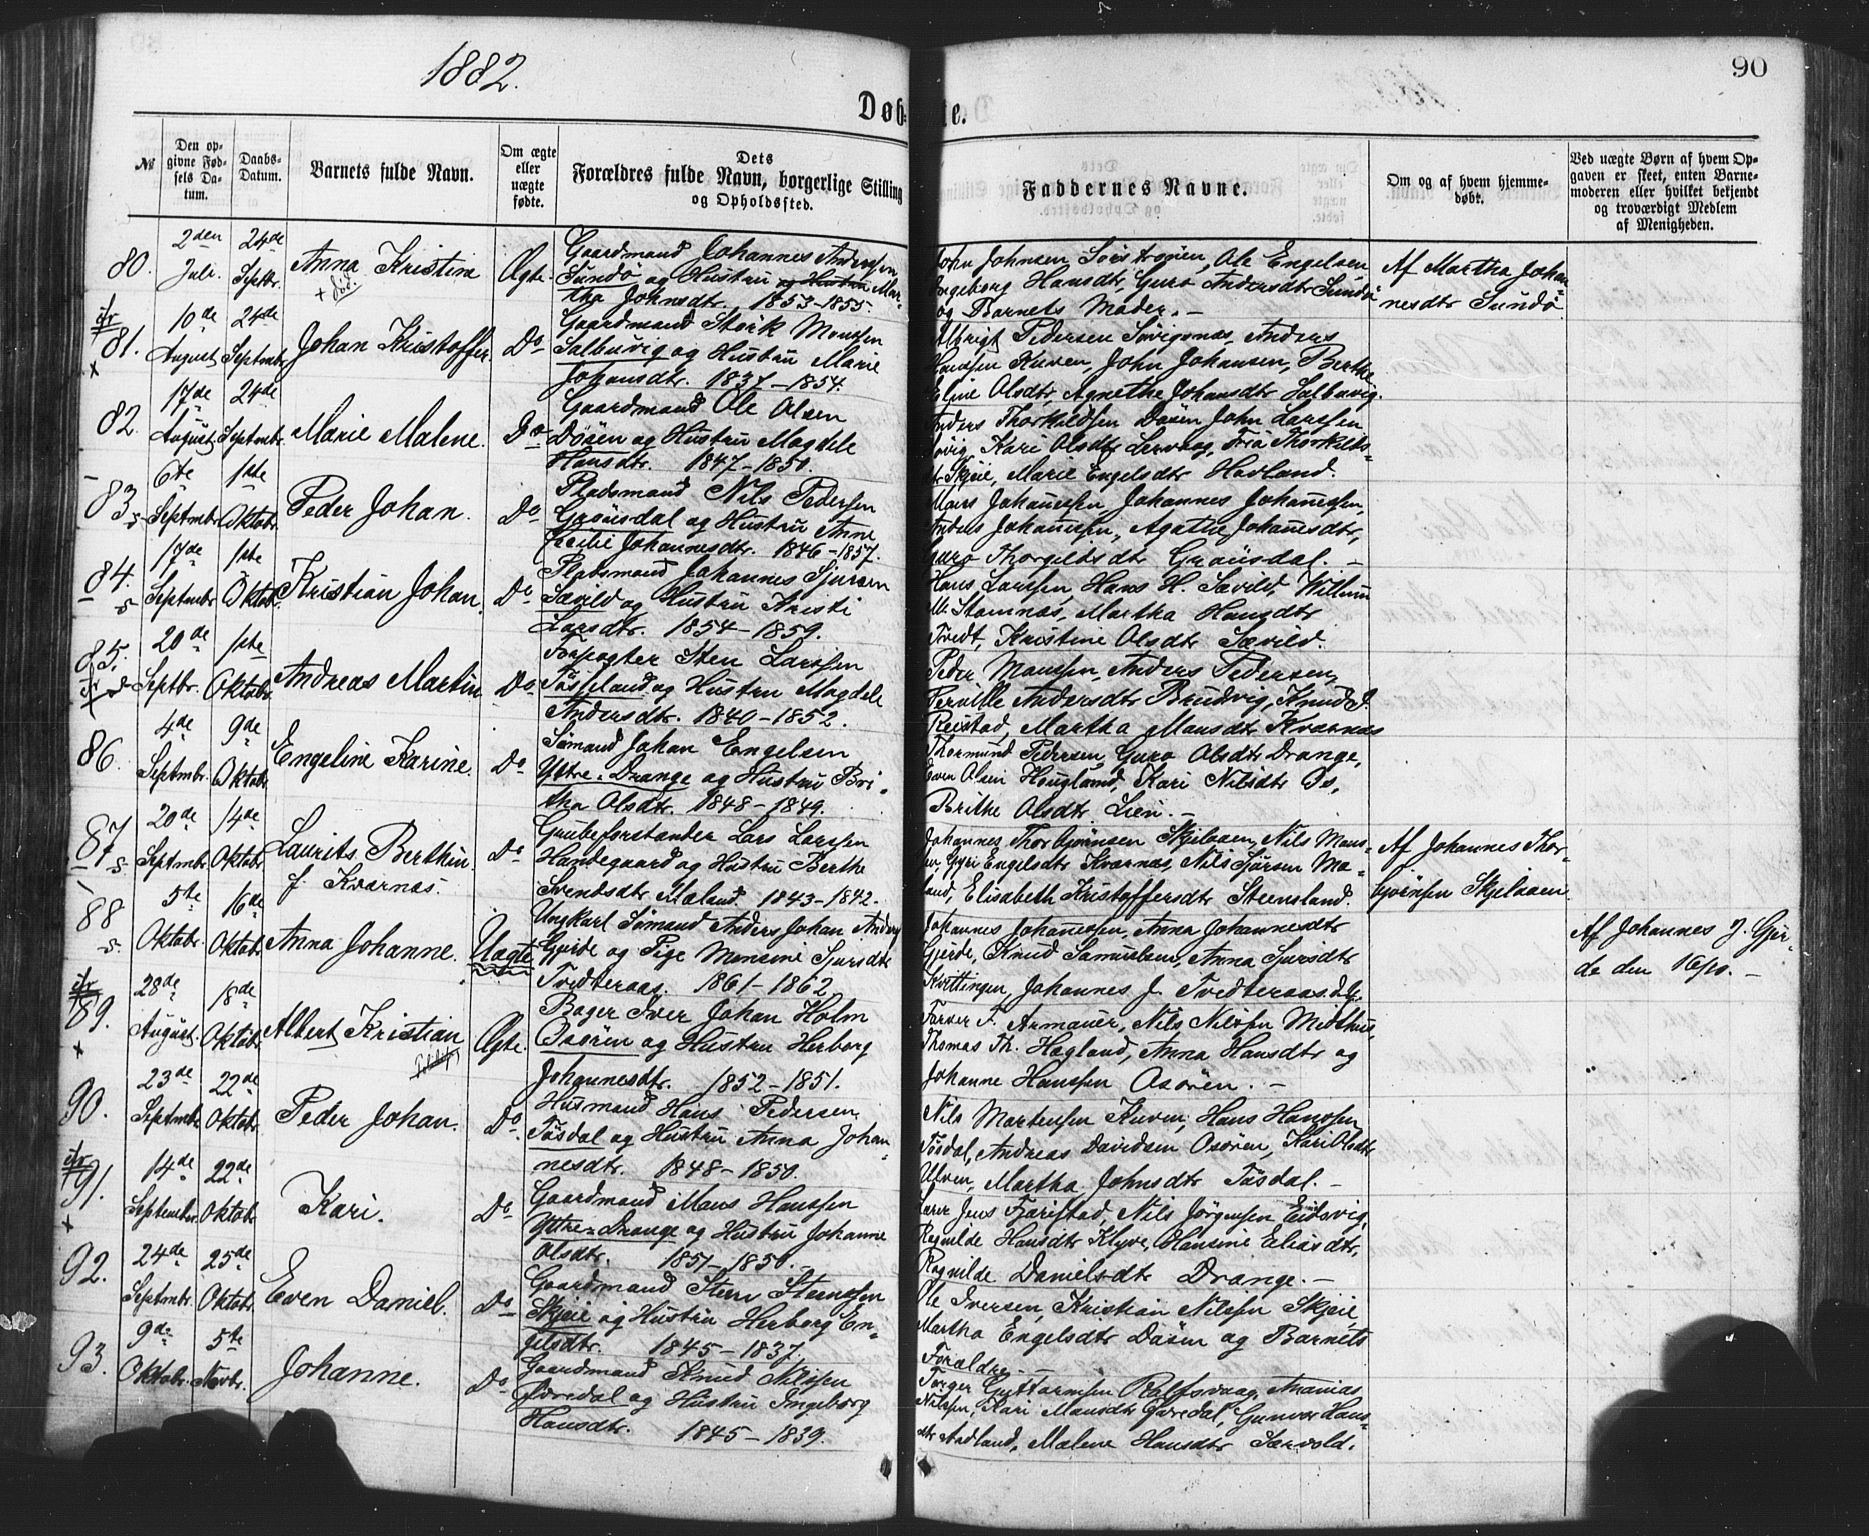 1882.
90
Døbte.
№
Den opgivne Fødsels Datum.
Daabs-Datum.
Barnets fulde Navn.
Om ægte eller uægte fødte.
Dets Forældres fulde Navn, borgerlige Stilling og Opholdssted.
Faddernes Navne.
Om og af hvem hjemmedøbt.
Ved uægte Børn af hvem Opgaven er skeet, enten Barnemoderen eller hvilket bekjendt og troværdigt Medlem af Menigheden.
80. 2den Juli. 24de Septbr. Anna Kristine Ægte
Gaardmand Johannes Andersen
Sundø og Hustru og Hustru Mar-
tha Johnsdtr. 1853-1855.
John Johnsen Sørstrønen, Ole Engelsen
Ingeborg Hansdtr, Guro Andersdtr Sundø
og Barnets Moder. –
Af Martha Johan
nesdtr Sundø
81. 10de August 24de Septmbr. Johan Kristoffer Do
Gaardmand Størk Monsen
Salbuvig og Hustru Marie
Johansdtr. 1837-1854.
Albrigt Pedersen Søvigsnæs, Anders
Hansen Kuven, John Johansen, Berthe
Eline Olsdtr, Agnethe Johansdtr Salbuvig.
82. 17de August 24de Septmbr. Marie Malene. Do
Gaardmand Ole Olsen
Døsen og Hustru Magdele
Hansdtr. 1847-1850.
Anders Thorkildsen Døsen John Larssen
Søvig, Kari Olsdtr Lervaag, Thorkilds-
dtr Skjeie, Marie Engelsdtr Havland.
83. 6te Septmbr. 1ste Oktobr. Peder Johan. Do
Pladsmand Nils Pedersen
Grønsdal og Hustru Anne
Cecilie Johannesdtr. 1846-1857.
Mons Johannessen, Johannes Johannessen,
Anders Johannessen, Agathe Johannesdtr,
Guro Thorgilsdtr Grønsdal. –
84. 17de Septembr 1ste Oktobr. Kristian Johan. Do
Pladsmand Johannes Sjursen
Sævild og Hustru Kristi
Larsdtr. 1854-1859.
Hans Larssen, Hans H. Sævild, Willum
M. Stamnæs, Martha Hansdtr
Tvedt, Kristine Olsdtr Sævild.
85. 20de Septbr. 1ste Oktobr. Andreas Martin. Do
Forpagter Sten Larssen
Tøsseland og Hustru Magdele
Andersdtr. 1840-1852.
Peder Monssen, Anders Pedersen,
Pernille Andersdtr Brudvig, Knud J.
Reistad, Martha Monsdtr Kvarnæs
86. 4de Septmbr. 9de Oktobr. Engeline Karine. Do
Sømand Johan Engelsen
Yttre-Drange og Hustru Bri-
tha Olsdtr. 1848-1849.
Thormund Pedersen, Guro Olsdtr Drange,
Even Olsen Hougland, Kari Nilsdtr Os,
Brithe Olsdtr Lien. –
87. 20de Septmbr. 14de Oktobr. Laurits Berthin Do
f. Kvarnæs.
Grubeforstander Lars Larssen
Handegaard og Hustru Berthe
Svendsdtr Mæland. 1843-1842.
Johannes Thorbjørnsen Skjelaaen, Nils Mons-
sen, Gyri Engelsdtr Kvarnæs, Nils Sjursen Mæ-
land, Elisabeth Kristoffersdtr Steensland.
Af Johannes Thor-
bjørnsen Skjelaaen.
88 5te Oktobr. 16de Oktobr. Anna Johanne. Uægte
Ungkarl Sømand Anders Johan Anders
Gjerde og Pige Monsine Sjursdtr
Tvedteraas. 1861-1862
Johannes Johannessen, Anna Johannesdtr
Gjerde, Knud Samuelsen, Anna Sjursdtr
Kvittingen, Johannes J. Tvedteraas.
Af Johannes J. Gjer-
de den 16/10. –
89. 28de August. 18de Oktobr. Albert Kristian Ægte.
Bager Iver Johan Holm
Osøren og Hustru Herborg
Johannesdtr. 1852-1851.
Farver F. Armauer, Nils Nilssen Midthus,
Thomas Th. Hagland, Anna Hansdtr og
Johanne Hanssen Osøren. –
90. 23de Septmbr. 22de Oktobr. Peder Johan. Do
Husmand Hans Pedersen
Tøsdal og Hustru Anna Johan
nesdtr. 1848-1850.
Nils Mortensen Kuven, Hans Hanssen
Tøsdal, Andreas Davidsen Osøren, Kari Olsdtr
Ulven, Martha Johnsdtr Tøsdal. –
91. 14de September 22de Oktobr. Kari. Do
Gaardmand Mons Hanssen
Yttre-Drange og Hustru Johanne
Olsdtr. 1851-1850. –
Lærer Jens Fjærestad, Nils Jørgensen Eidsvig,
Ragnilde Hansdtr Klyve, Hansine Eliasdtr,
Ragnilde Danielsdtr Drange. –
92. 24de Septmbr. 25de Oktobr. Even Daniel. Do
Gaardmand Steen Steensen
Skjeie og Hustru Herborg En-
gelsdtr. 1845-1837.
Ole Iversen, Kristian Nilssen Skjeie,
Martha Engelsdtr Døsen og Barnets
Forældre.
93. 9de Oktobr. 5te Novbr. Johanne. Do
Gaardmand Knud Nilssen
Øvredal og Hustru Ingeborg
Hansdtr. 1845-1839.
Torger Guttormsen Rolfsvaag, Ananias
Nilssen, Kari Monsdtr Øvredal, Gunvor Hans-
dtr Aadland, Malene Hansdtr Særvold.